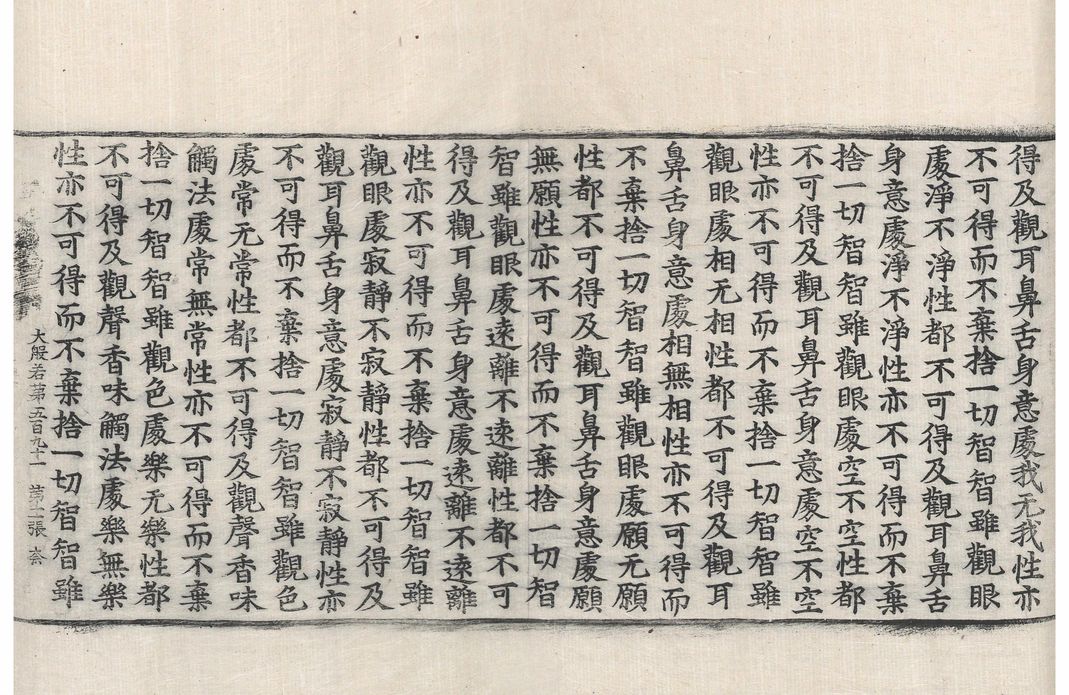 得及觀耳鼻舌身意處我无我性亦
不可得而不棄捨一切智智雖觀眼
處淨不淨性都不可得及觀耳鼻舌
身意處淨不淨性亦不可得而不棄
捨一切智智雖觀眼處空不空性都
不可得及觀耳鼻舌身意處空不空
性亦不可得而不棄捨一切智智雖
觀眼處相无相性都不可得及觀耳
鼻舌身意處相無相性亦不可得而
不棄捨一切智智雖觀眼處願无願
性都不可得及觀耳鼻舌身意處願
無願性亦不可得而不棄捨一切智
智雖觀眼處遠離不遠離性都不可
得及觀耳鼻舌身意處遠離不遠離
性亦不可得而不棄捨一切智智雖
觀眼處寂靜不寂靜性都不可得及
觀耳鼻舌身意處寂靜不寂靜性亦
不可得而不棄捨一切智智雖觀色
處常无常性都不可得及觀聲香味
觸法處常無常性亦不可得而不棄
捨一切智智雖觀色處樂无樂性都
不可得及觀聲香味觸法處樂無樂
性亦不可得而不棄捨一切智智雖
大般若第五百九十一 第二張 奈